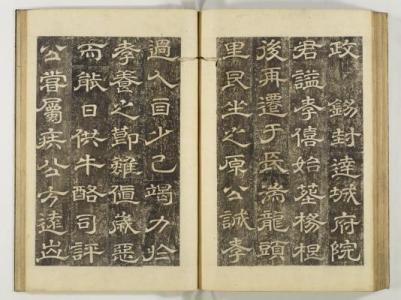 政 錫封達城府院
君諡孝僖始墓楊根
後再遷于長湍龍頭
里艮坐之原公誠孝
過人自少已竭力於
孝養之節雖值歲惡
而能日供牛酪司評
公嘗屬疾公方遠出